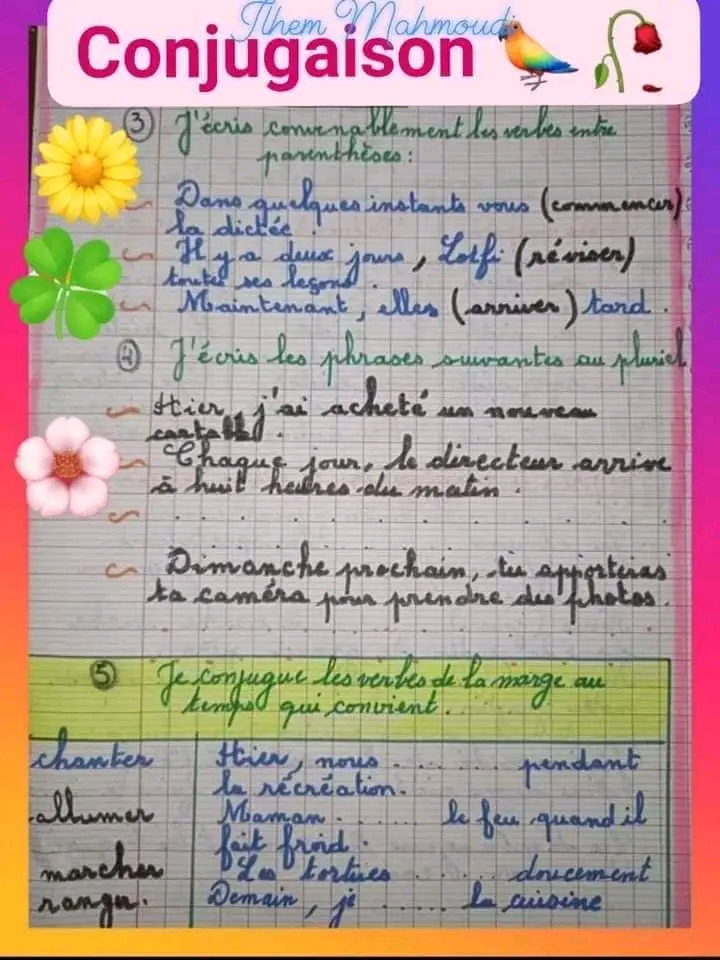 Ilhem Mahmoudi
Conjugaison
③ J'écris convenablement les verbes entre
parenthèses :
Dans quelques instants vous (commencer)
la dictée
Il y a deux jours, Lotfi (réviser)
toutes ses leçons.
Maintenant, elles (arriver) tard.
④ J'écris les phrases suivantes au pluriel
Hier, j'ai acheté un nouveau
cartable.
Chaque jour, le directeur arrive
à huit heures du matin.
. . . . . . . . . .
Dimanche prochain, tu apporteras
ta caméra pour prendre des photos.
⑤ Je conjugue les verbes de la marge au
temps qui convient.
chanter Hier, nous . . . . . . pendant
la récréation.
allumer Maman . . . . . . le feu quand il
fait froid.
marcher Les tortues . . . . . . doucement
ranger. Demain, je . . . . . la cuisine